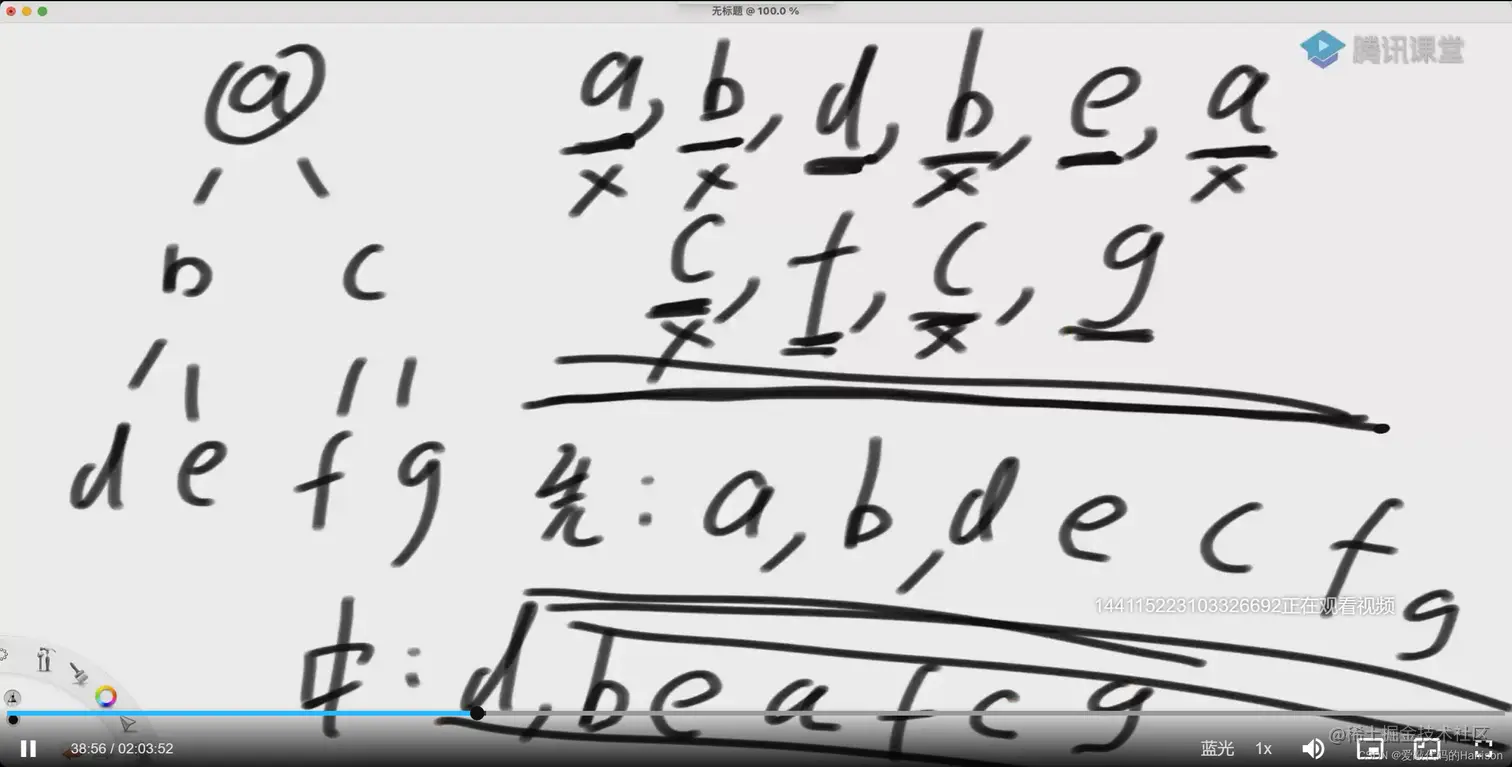 无标题 @ 100.0 %
腾讯课堂
a
b c
d e f g
a, b, d, b, e, a
x x x x
c, f, c, g
x x
先: a, b, d e c f g
中: d, b e a f c g
144115223103326692正在观看视频
38:56 / 02:03:52
蓝光 1x
@稀土掘金技术社区
CSDN @爱敲代码的Harrison